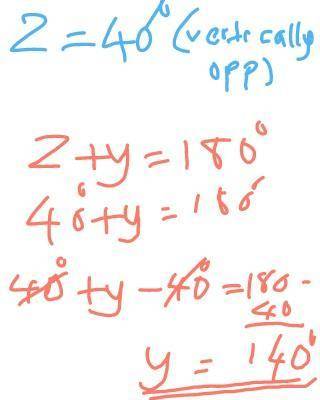 Z = 40° (vertically
opp)
Z + y = 180°
40° + y = 180°
40° + y - 40° = 180 -
40
y = 140°